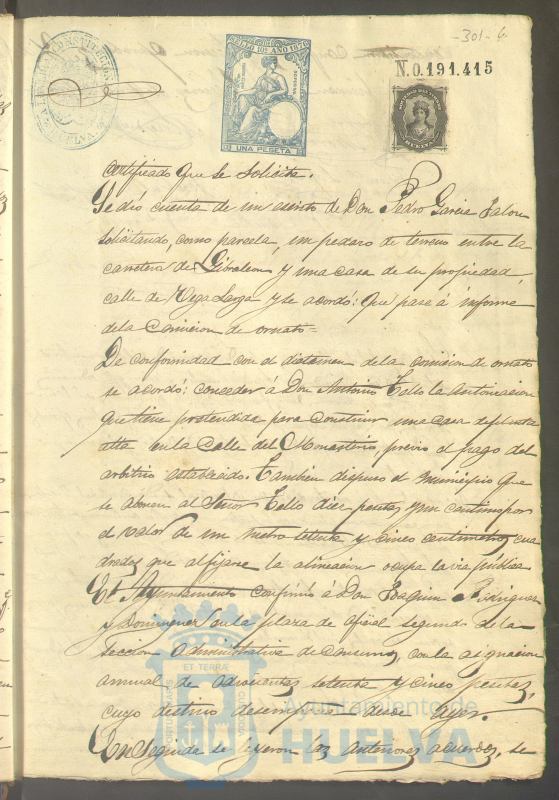 -301- 6
SELLO 10º AÑO 1876
UNA PESETA
N.0.191.415
HUELVA
certificado que se solicita.
Se dió cuenta de un escrito de Don Pedro Garcia Jalon
solicitando, como parcela, un pedazo de terreno entre la
carretera de Gibraleon y una casa de su propiedad,
calle de Vega Larga y se acordó: Que pase á informe
de la Comision de ornato=
De conformidad con el dictamen de la comision de ornato
se acordó: conceder á Don Antonio Tello la autorizacion
que tiene pretendida para construir una casa de planta
alta en la Calle del Monasterio, previo el pago del
arbitrio establecido. Tambien dispuso el Municipio que
se abonen al Señor Tello diez pesetas y un centimo por
el valor de un metro setenta y cinco centimetros cua
drados que al fijarse la alineacion ocupa la via pública.
El Ayuntamiento confirió á Don Joaquin Rodriguez
y Dominguez en la plaza de oficial segundo de la
Seccion Administrativa de Consumos, con la asignacion
anual de setenta y cinco pesetas,
cuyo destino desempeña desde Ayer.
En Seguida se leyeron las anteriores acuerdos, se
ET TERRÆ
Ayuntamiento de
HUELVA